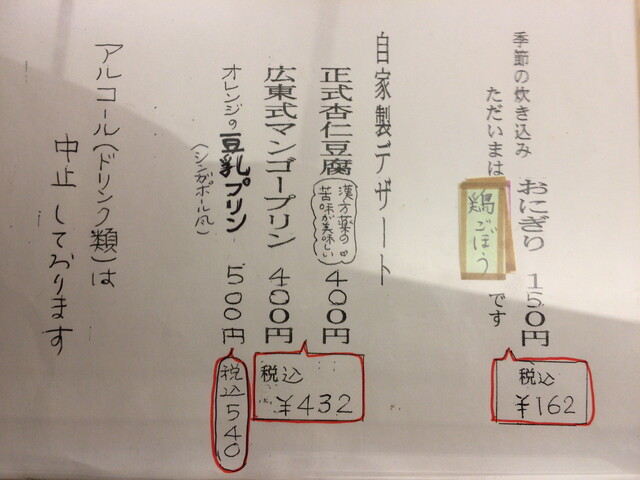 季節の炊き込み おにぎり 150円
税込
¥162
ただいまは 鶏ごぼう です
自家製デザート
正式杏仁豆腐
漢方薬の
苦味が美味しい
400円
広東式マンゴープリン 400円
税込
¥432
オレンジの豆乳プリン 500円
(シンガポール風)
税込540
アルコール(ドリンク類)は
中止しております